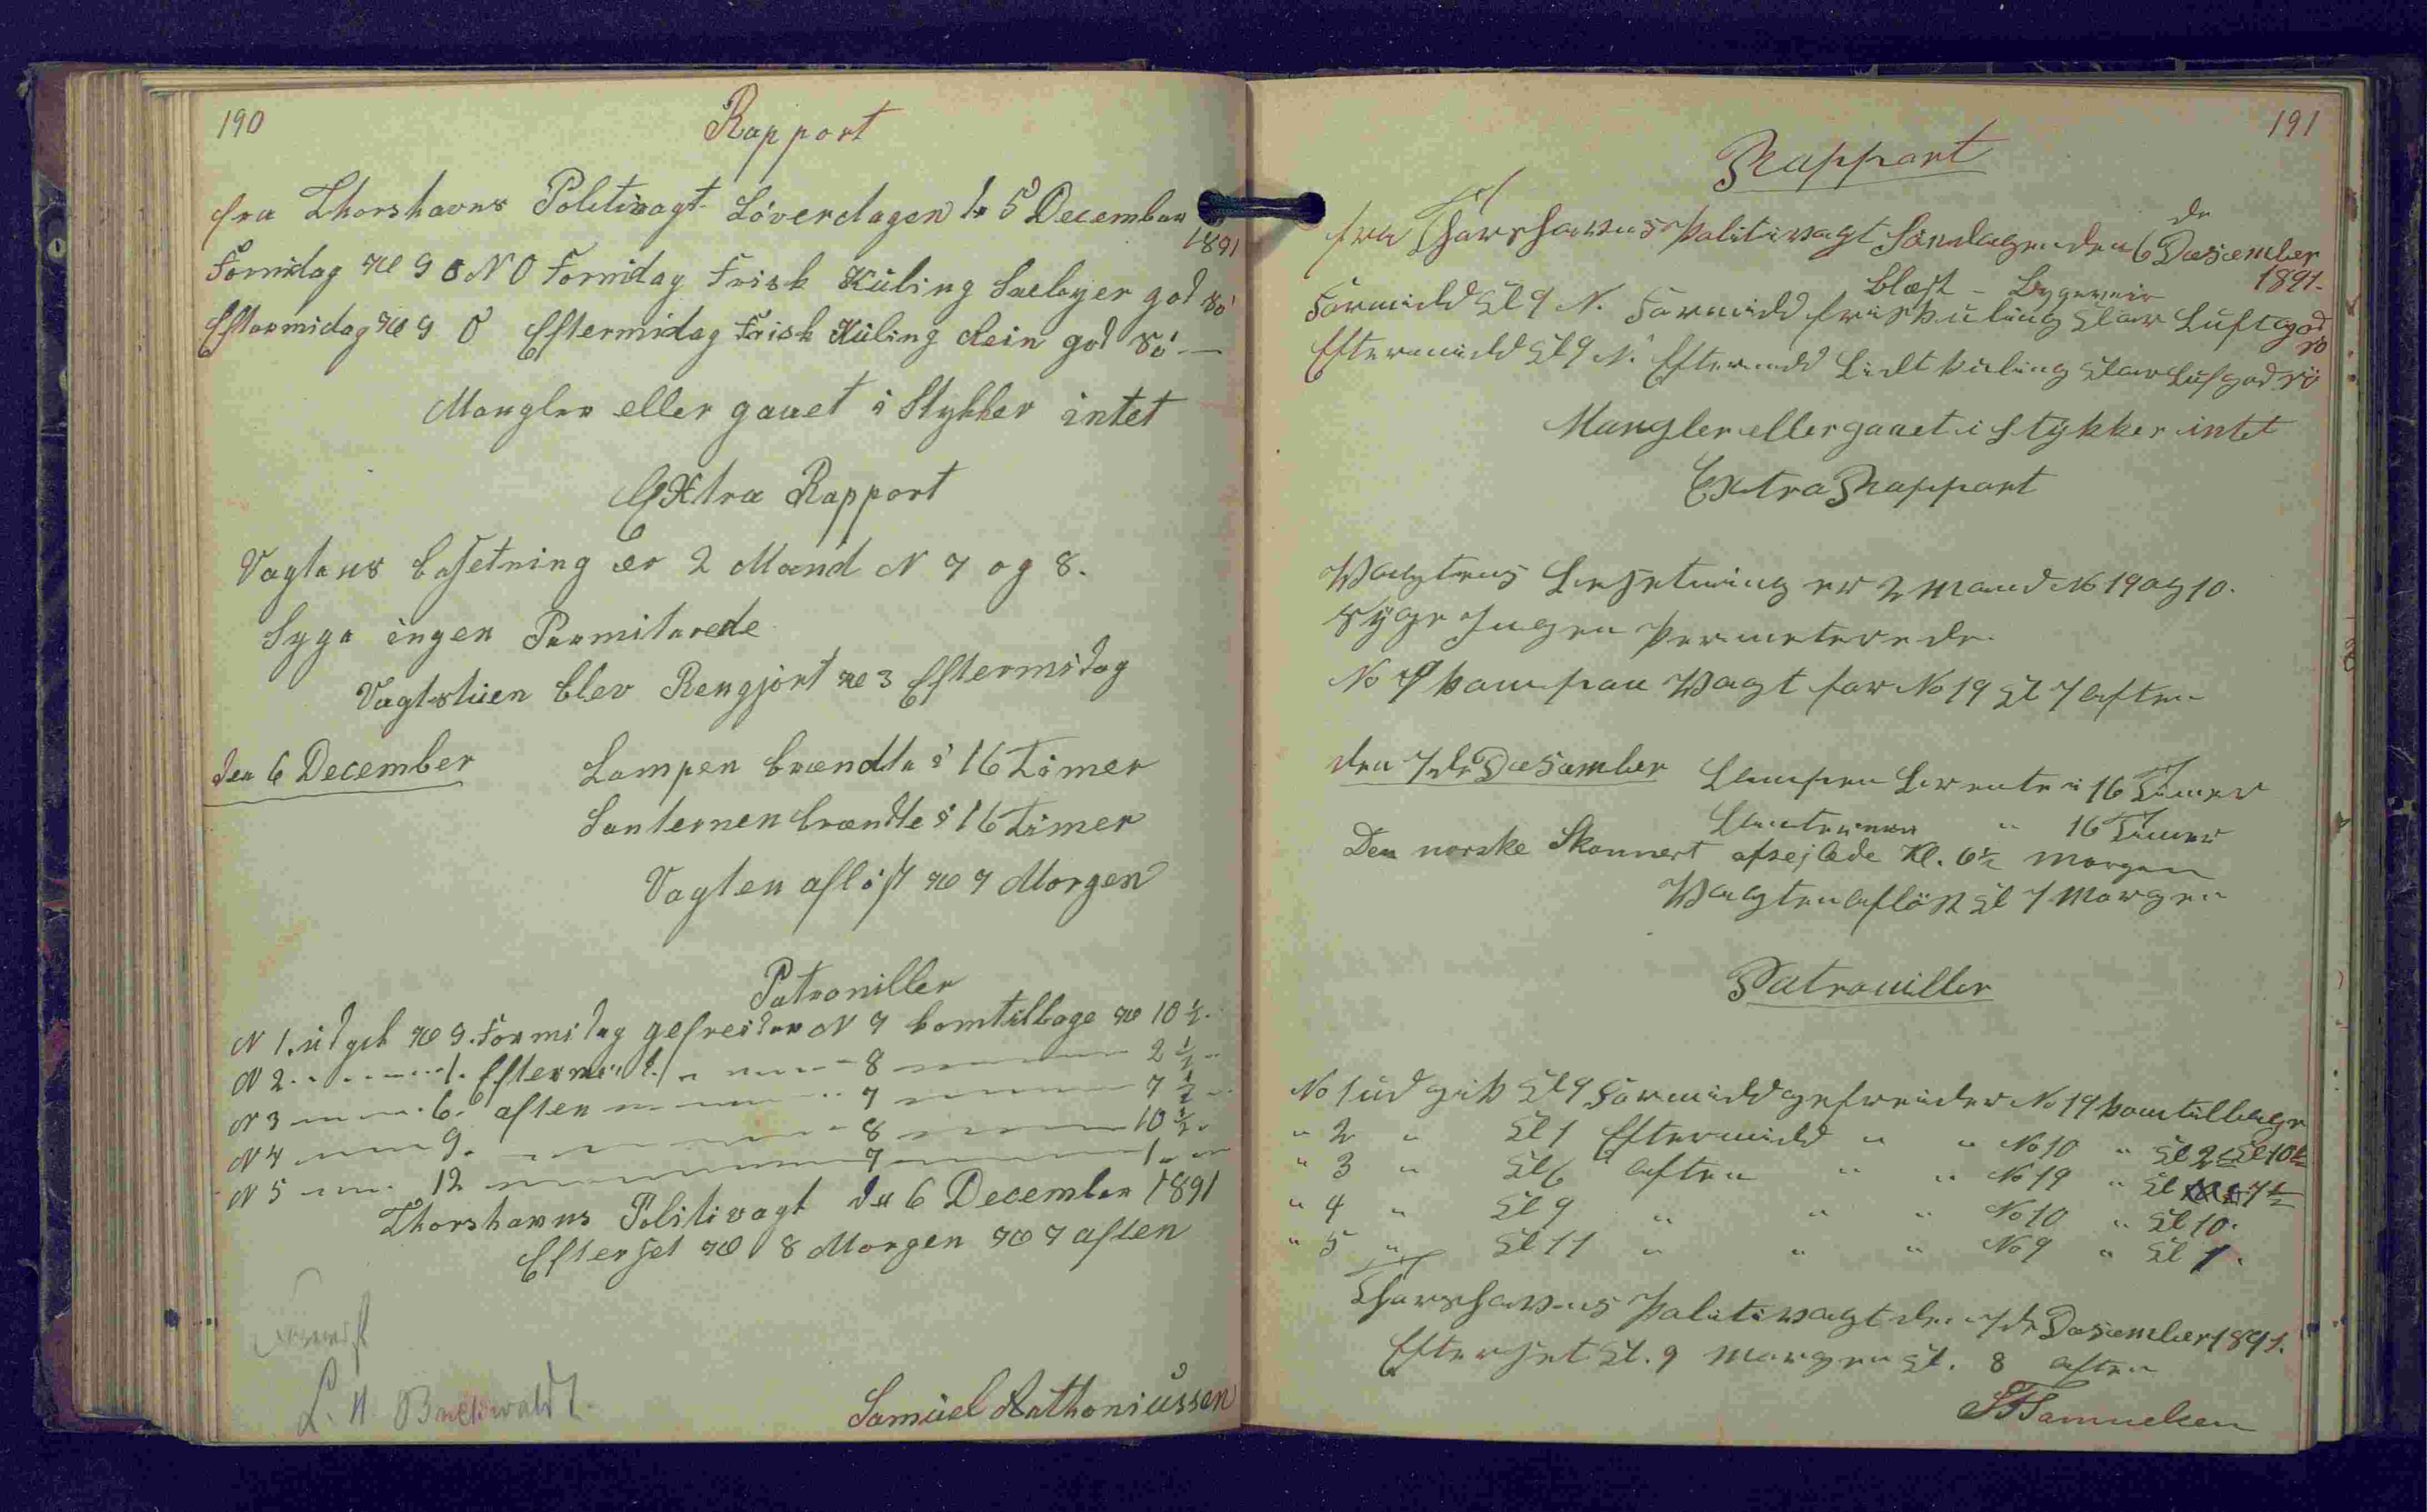 190
Rapport
fra Thorshavns Politivagt Löverdagen d. 5 December
1891
Formidag Kl 9 O N O Formidag Frisk Küling god Rö
Eftermidag Kl 9 O Eftermidag Frisk Küling god Rö
Mangler eller gaaet i Stykker intet
EXtra Rapport
Vagtens besetning er 2 Mand N 7 og 8.
Syge ingen Permiterede
Vagtstüen blev Rengjort Kl 3 Eftermidag
den 6 December Lampen brændte i 16 Timer
Lanternen brændte i 16 Timer
Vagten aflöst Kl 7 Morgen
Patroniller
N 1. üdgik Kl 9. Formidag gefreider N 7 komtilbage Kl 10 ½.
N 2 1. Eftermid. 8 2 ½
N 3 6. aften 7 7 ½
N 4 9. 8 10 ½.
N 5 12 7 1.
Thorshavns Politivagt den 6 December 1891
Efterset Kl 8 Morgen Kl 7 aften
Samüel Mathoniüssen
191
Rapport
de
fra Thorshavns Politivagt Söndagen den 6 Desember
1891.
Blæst - Bygeveir
Formidd Kl 9 N. Formidd frisk Küling Klar Luft god
rö
Eftermidd Kl 9 N. Eftermidd Lidt Küling Klar Luf god rö
Mangler eller gaaet i Stykker intet
Extra Rapport
Wagtens Besetning er 2 Mand No 19 og 10.
Syge Ingen Permeterede.
No 9 kom paa Wagt for No 19 Kl 7 Aften
den 7de Desember Lampen brente i 16 Timer
Lanternen " 16 Timer
Den norske Skonnert afsejlede Kl. 6½ Morgen
Wagten Aflöst Kl 7 Morgen
Patrouiller
No 1 üd gik Kl 9 Formidd gefreider No 19 kom tilbage
Kl 10½
" 2 " Kl 1 Eftermidd " " No 10 " Kl 2½
" 3 " Kl 6 Aften " " No 19 " Kl 7½
" 4 " Kl 9 " " " No 10 " Kl 10.
" 5 " Kl 11 " " " No 9 " Kl 1.
Thorshavns Politivagt den 7de Desember 1891.
Efterset Kl. 9 Morgen Kl. 8 Aften
Samuelsen